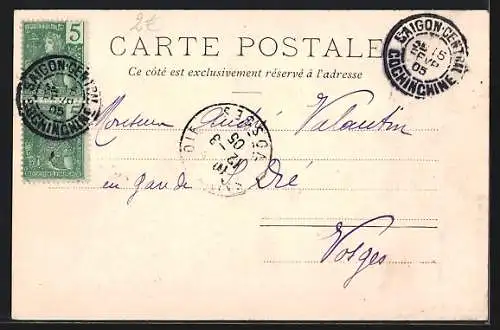 2€
5
CARTE POSTALE
Ce côté est exclusivement réservé à l'adresse
SAIGON-CENTRAL
15
05
COCHINCHINE
SAIGON-CENTRAL
05
COCHINCHINE
Monsieur André Valantin
VOSGES
12 - 3
05
en gare de S. Dié
Vosges